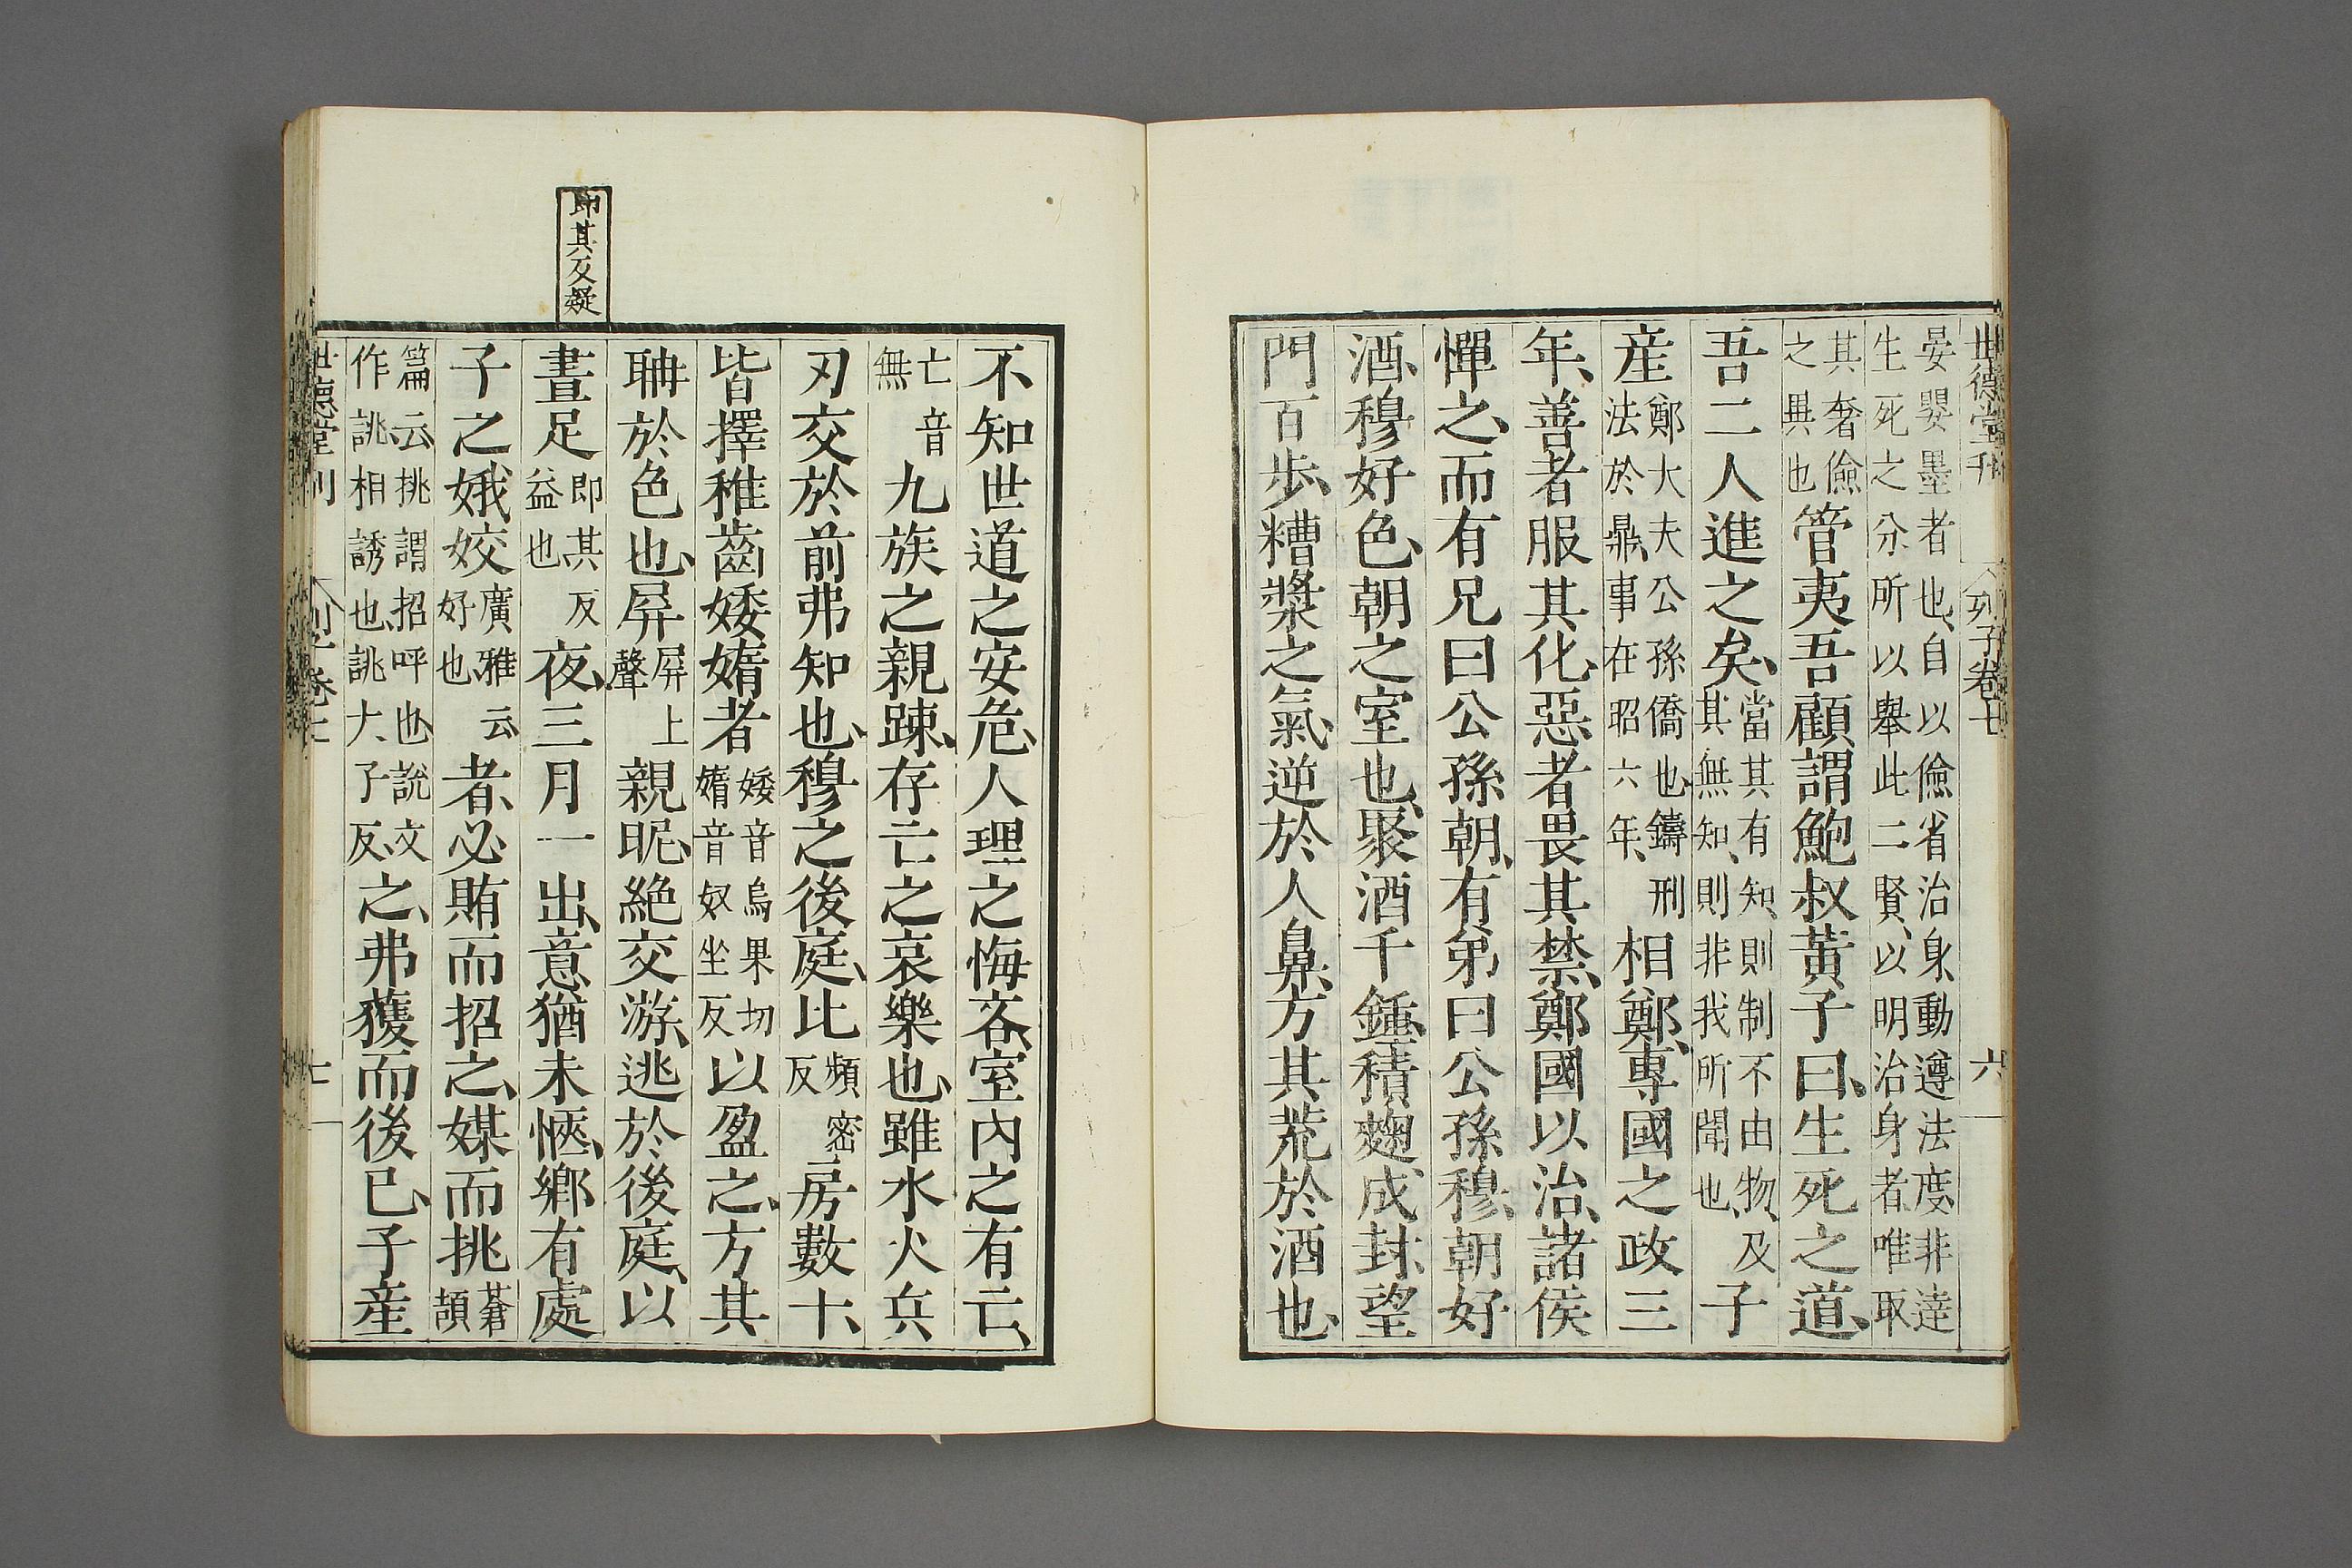 世德堂刊　列子卷七　六
晏嬰墨者也、自以儉省治身、動遵法度、非達
生死之分、所以舉此二賢、以明治身者、唯取
其奢儉
之異也
管夷吾顧謂鮑叔黃子曰、生死之道、
吾二人進之矣、
當其有知、則制不由物、及
其無知、則非我所聞也、
子
産
鄭大夫公孫僑也鑄刑
法於鼎、事在昭六年、
相鄭、專國之政三
年、善者服其化、惡者畏其禁、鄭國以治、諸侯
憚之、而有兄曰公孫朝、有弟曰公孫穆、朝好
酒、穆好色、朝之室也、聚酒千鍾、積麴成封、望
門百步、糟漿之氣、逆於人鼻、方其荒於酒也、
不知世道之安危、人理之悔吝、室內之有亡、
亡音
無
九族之親踈、存亡之哀樂也、雖水火兵
刃交於前弗知也、穆之後庭、比
頻密
反
房數十、
皆擇稚齒婑媠者
婑音烏果切
媠音奴坐反
以盈之、方其
聃於色也、屏
屏上
聲
親昵、絕交游、逃於後庭、以
即其反疑
晝足
即其反
益也
夜、三月一出、意猶未愜、鄉有處
子之娥姣
廣雅云
好也
者、必賄而招之、媒而挑
蒼
頡
篇云挑謂招呼也說文
作誂、相誘也、誂大子反、
之、弗獲而後已、子産
世德堂刊　列子卷七　七